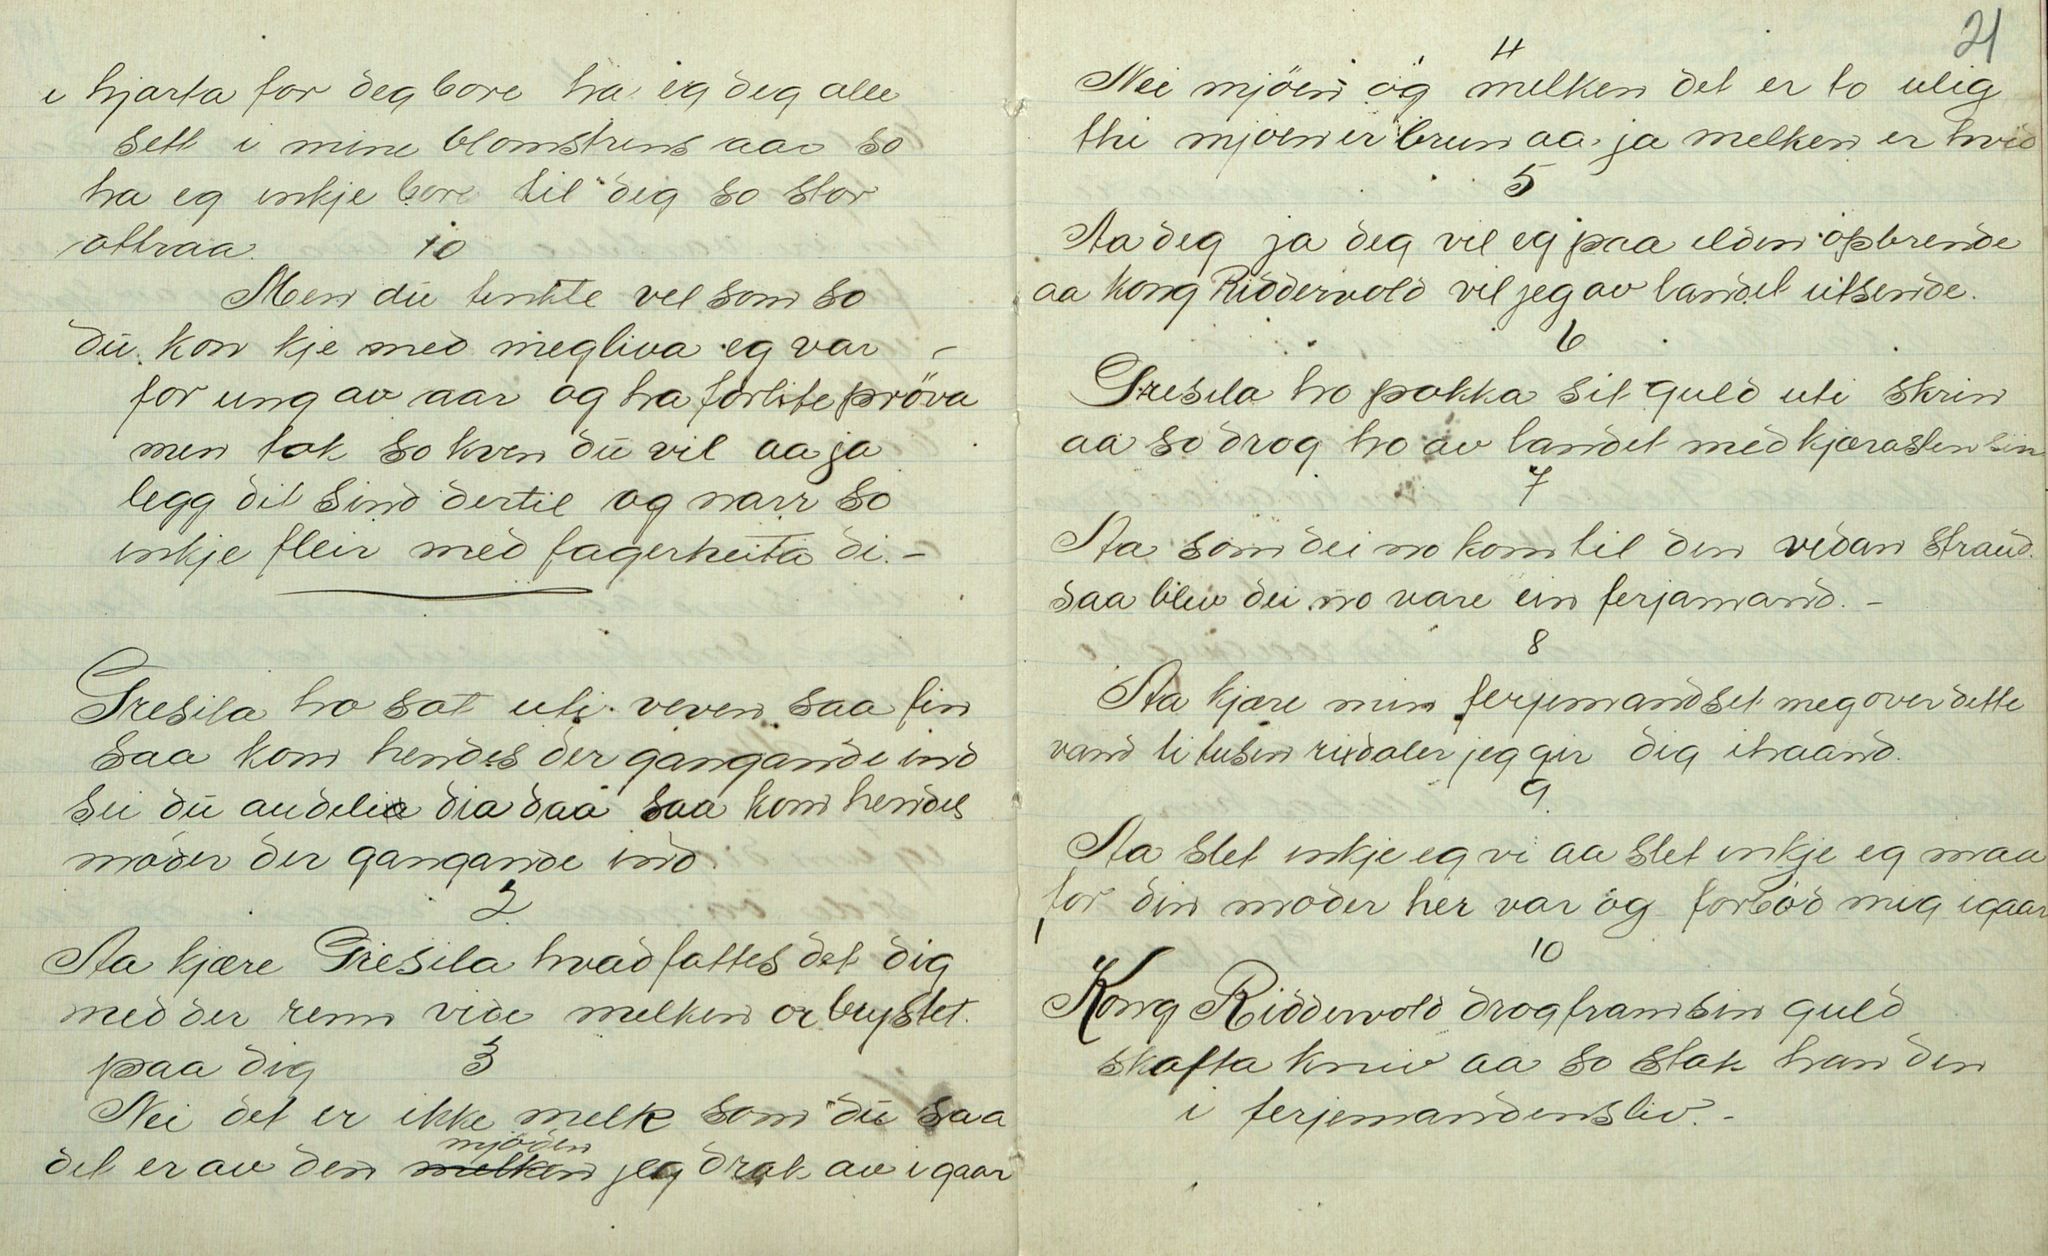 i hjarta for deg bore ha eg deg alle
sett i mine blomstrens aar so
ha eg inkje bore til deg so stor
attraa.
10
Men du tenkte vel som so
du kon kje med meg liva eg var –
for ung av aar og ha forlite pröva
men tak so kven du vil aa ja
legg dit sind dertil og narr so
inkje fleir med fagerheita di. –
Gresila ho sat uti veven saa fin
saa kom hendes der gangande ind
sei du audelia dia daa saa kom hendes
moder der gangande ind.
2
Aa kjære Gresila hvad fattes det dig
med der renn vide melken or brystet
paa dig
3
Nei det er ikke melk som du saa
mjöden
det er av den melken jeg drak av igaar
21
4
Nei mjöen og melken det er to ulig
thi mjöen er brun aa ja melken er hvid
5
Aa deg ja deg vil eg paa elden opbrende
aa kong Riddervold vil jeg av landet utsende.
6
Gresila ho pakka sit guld uti skrin
aa so drog ho av landet med kjærasten sin
7
Aa som dei no kom til den vidan strand
saa blev dei no vare ein ferjamand. –
8
Aa kjære min ferjemand set meg over dette
vand ti tusen rixdaler jeg gir dig ihaand.
9
Aa slet inkje eg vi aa slet inkje eg maa
for din moder her var og forbød mig igaar
10
Kong Riddervold drog fram sin guld
skafta kniv aa so stak han den
i ferjemandens liv. –